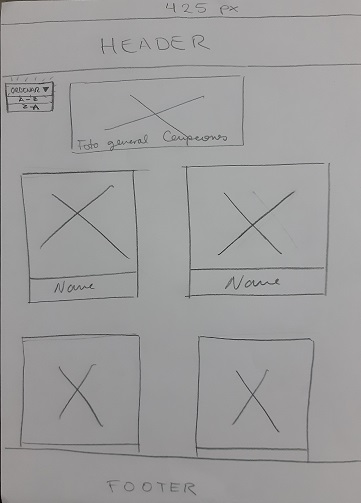 425 px
HEADER
ORDENAR ▼
A-Z
Z-A
Foto general Campeones
Name
Name
FOOTER